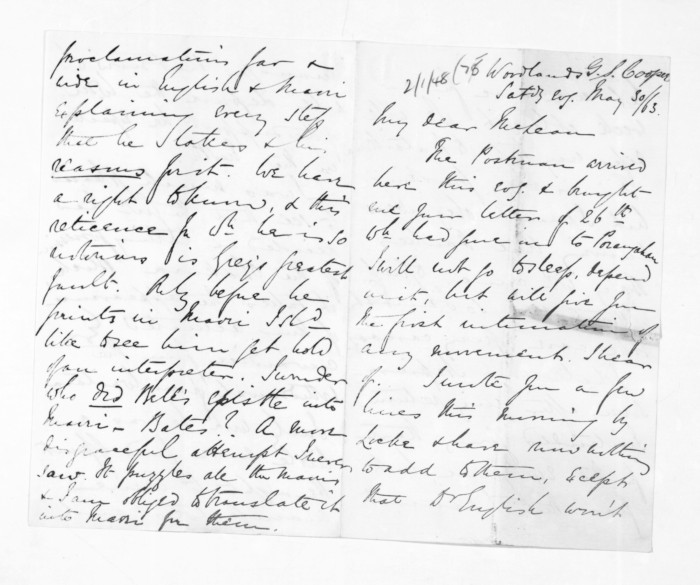 Woodlands G. S. Cooper
Satdy evg. May 30/63.
My dear McLean
The Postman arrived
here this evg. & brought
me your letters of 26th
wh. had gone on to Porangahau
I will not go to sleep, depend
on it, but will give you
the first intimation of
any movement I hear
of. I wrote you a few
lines this morning by
Locke & have now nothing
to add to them, except
that Dr English won't
proclamations far &
wide in English & Maori
explaining every step
that he &c takes & his
reasons for it. We have
a right to know, & this
reticence for wh. he is so
notorious is Grey's greatest
fault. Only before he
prints in Maori I shd.
like to see him get hold
of an interpreter. I wonder
who did Bell's epistle into
Maori - Bates? A more
disgraceful attempt I never
saw. It puzzles all the Maoris
& I am obliged to translate it
into Maori for them.